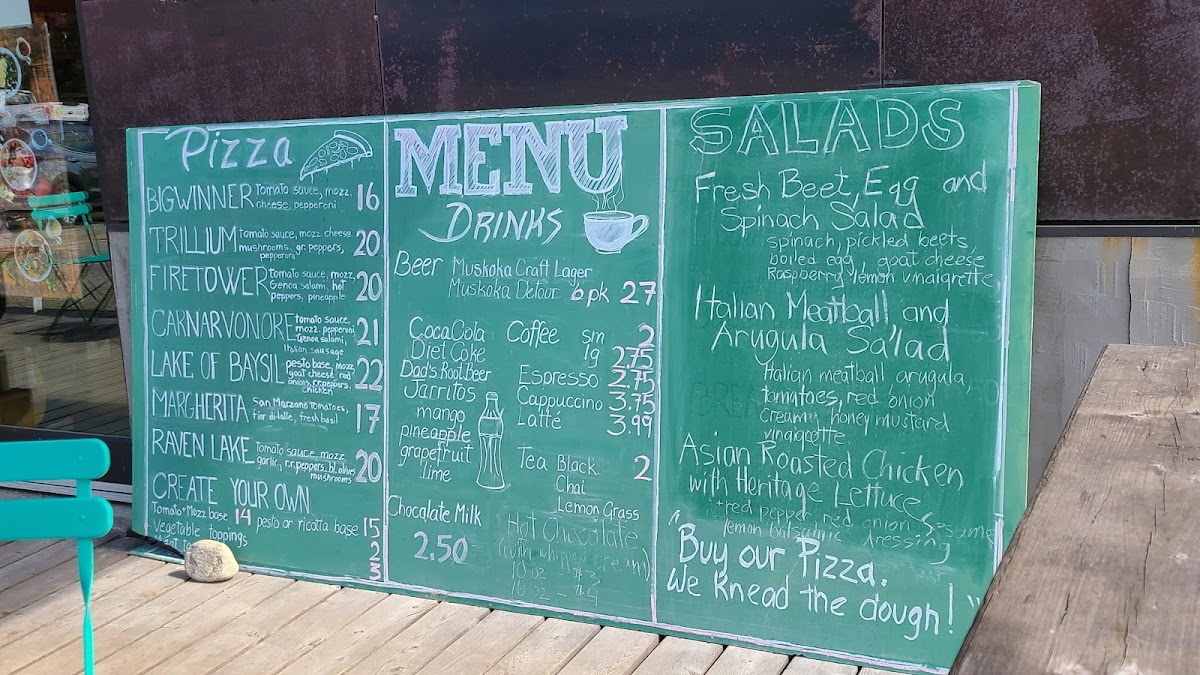 Pizza
BIGWINNER Tomato sauce, mozz. 16
cheese, pepperoni
TRILLIUM tomato sauce, mozz. cheese 20
mushrooms, gr. peppers,
pepperoni
FIRETOWER tomato sauce, mozz, 20
Genoa salami, hot
peppers, pineapple
CARNARVONORE tomato sauce, 21
mozz. pepperoni
Genoa salami,
Italian sausage
LAKE OF BAYSIL pesto base, mozz, 22
goat cheese, red
onions, r.r.peppers,
chicken
MARGHERITA San Marzano tomatoes, 17
fior di latte, fresh basil
RAVEN LAKE Tomato sauce, mozz, 20
garlic, r.r.peppers, bl. olives
mushrooms
CREATE YOUR OWN
Tomato+Mozz base 14 pesto or ricotta base 15
Vegetable toppings 2
3
MENU
DRINKS
Beer Muskoka Craft Lager
Muskoka Detour 6pk 27
CocaCola
Diet Coke
Dad's Root Beer
Jarritos
mango
pineapple
grapefruit
lime
Chocalate Milk
2.50
Coffee sm 2
lg 2.75
Espresso 2.75
Cappuccino 3.75
Latté 3.99
Tea Black 2
Chai
Lemon Grass
Hot Chocolate
(with whipped cream)
10 oz - $3
16 oz - $4
SALADS
Fresh Beet, Egg and
Spinach Salad
spinach, pickled beets,
boiled egg, goat cheese
Raspberry lemon vinaigrette
Italian Meatball and
Arugula Salad
Italian meatball arugula,
tomatoes, red onion
creamy honey mustard
vinaigrette
Asian Roasted Chicken
with Heritage Lettuce
+red pepper, red onion, sesame
lemon balsamic dressing
"Buy our Pizza.
We Knead the dough!"